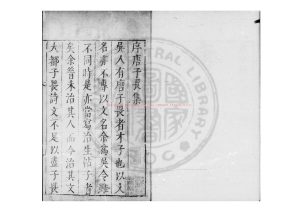 序唐子畏集
吳人有唐子畏者才子也以文
名亦不專以文名余為吳令雖
不同時是亦當寫治生帖子者
矣余昔未治其人而今治其文
大都子畏詩文不足以盡子畏
LIBRARY